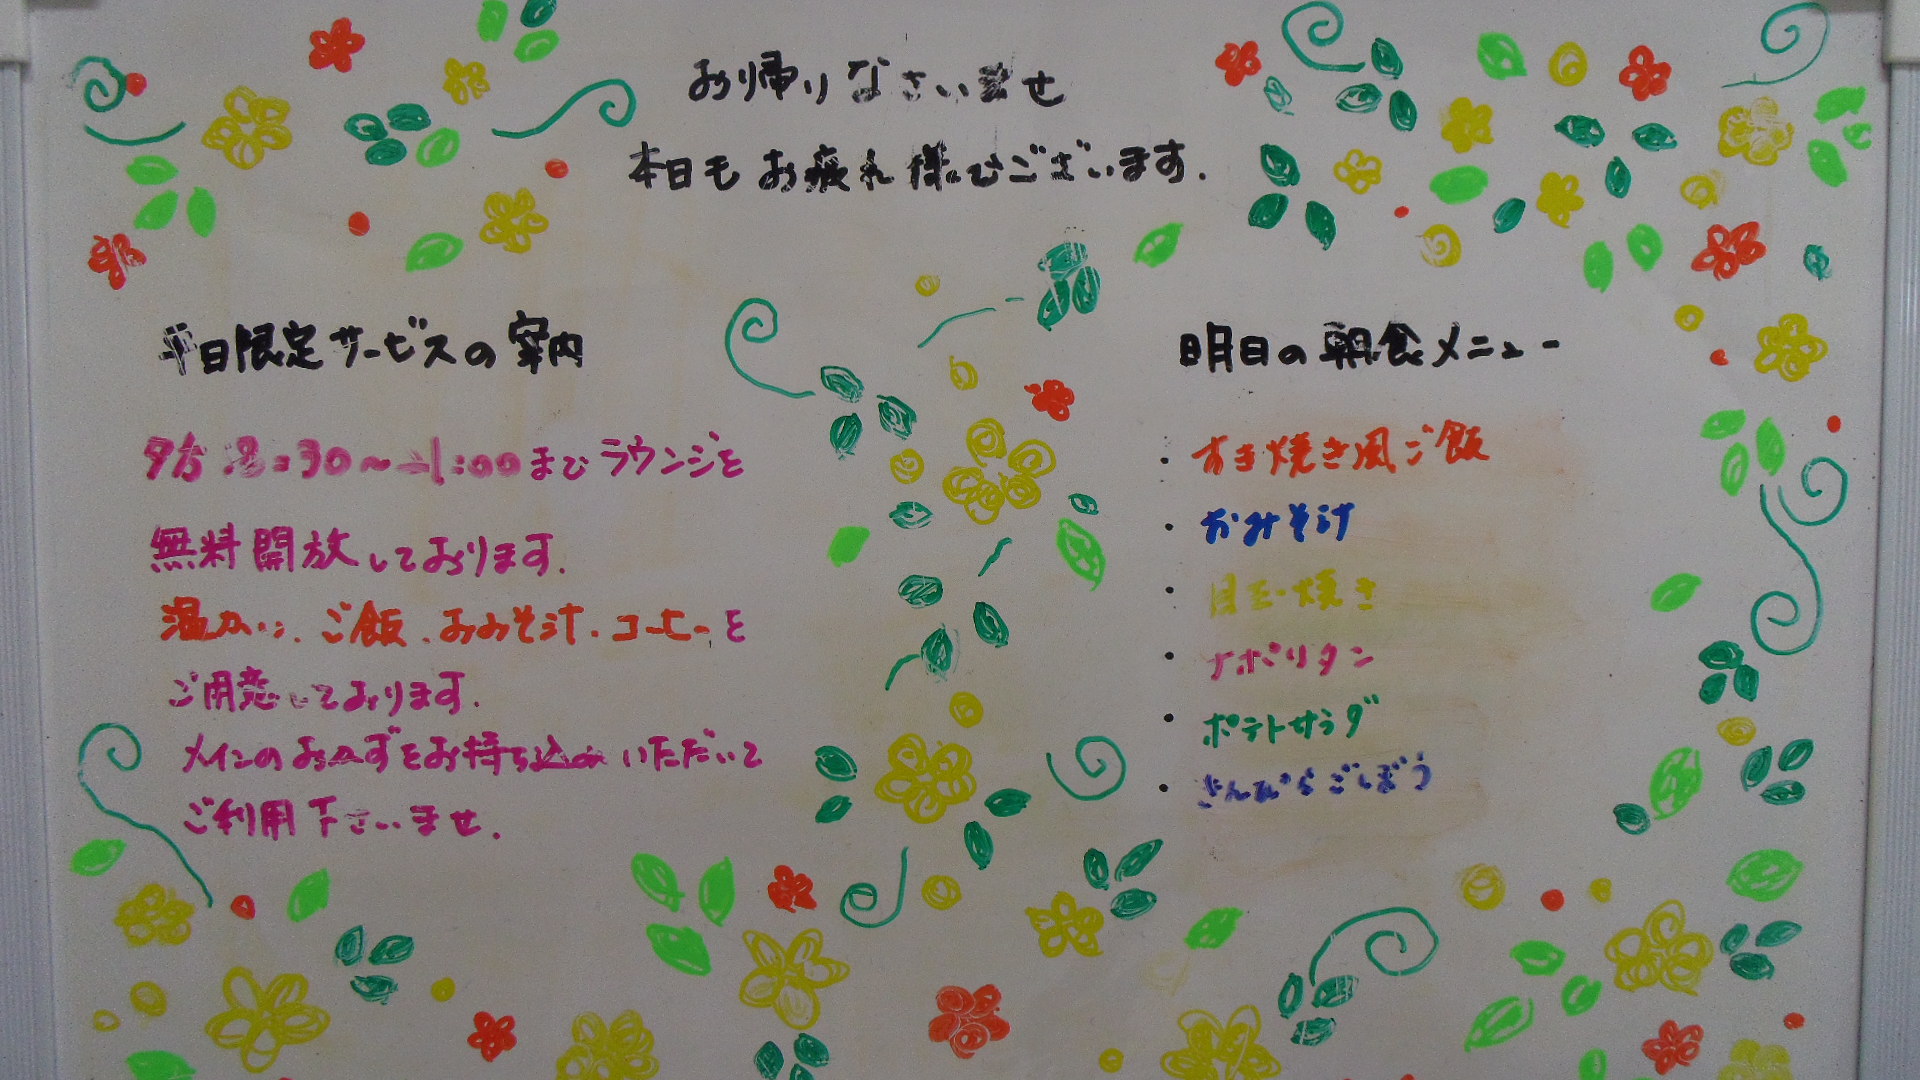 お帰りなさいませ
本日もお疲れ様でございます.
平日限定サービスの案内
夕方 8:30〜11:00までラウンジを
無料開放しております.
温かい、ご飯、おみそ汁、コーヒーを
ご用意しております.
メインのおかずをお持ち込みいただいて
ご利用下さいませ.
明日の朝食メニュー
・すき焼き風ご飯
・おみそ汁
・目玉焼き
・ナポリタン
・ポテトサラダ
・きんぴらごぼう